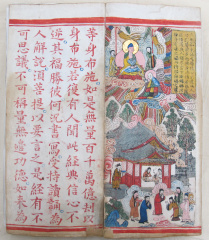 等身布施如是無量百千萬億劫以
身布施若復有人聞此經典信心不
逆其福勝彼何況書寫受持讀誦為
人解說須菩提以要言之是經有不
可思議不可稱量無邊功德如來為